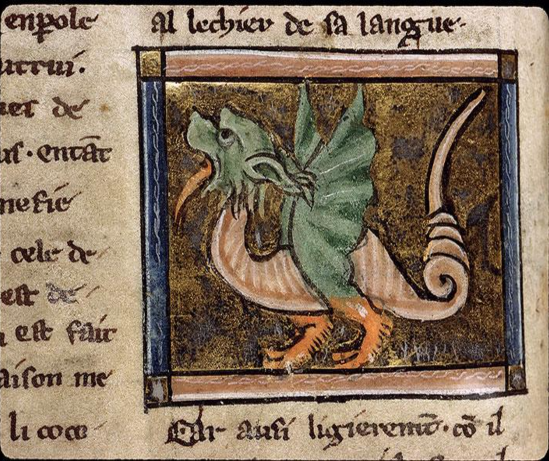 enpole
utrui.
uet de
us. entāt
nefie
cele de
est de
est fait
aison me
li coce
al lechier de sa langue.
Car ausi ligierement. cō il